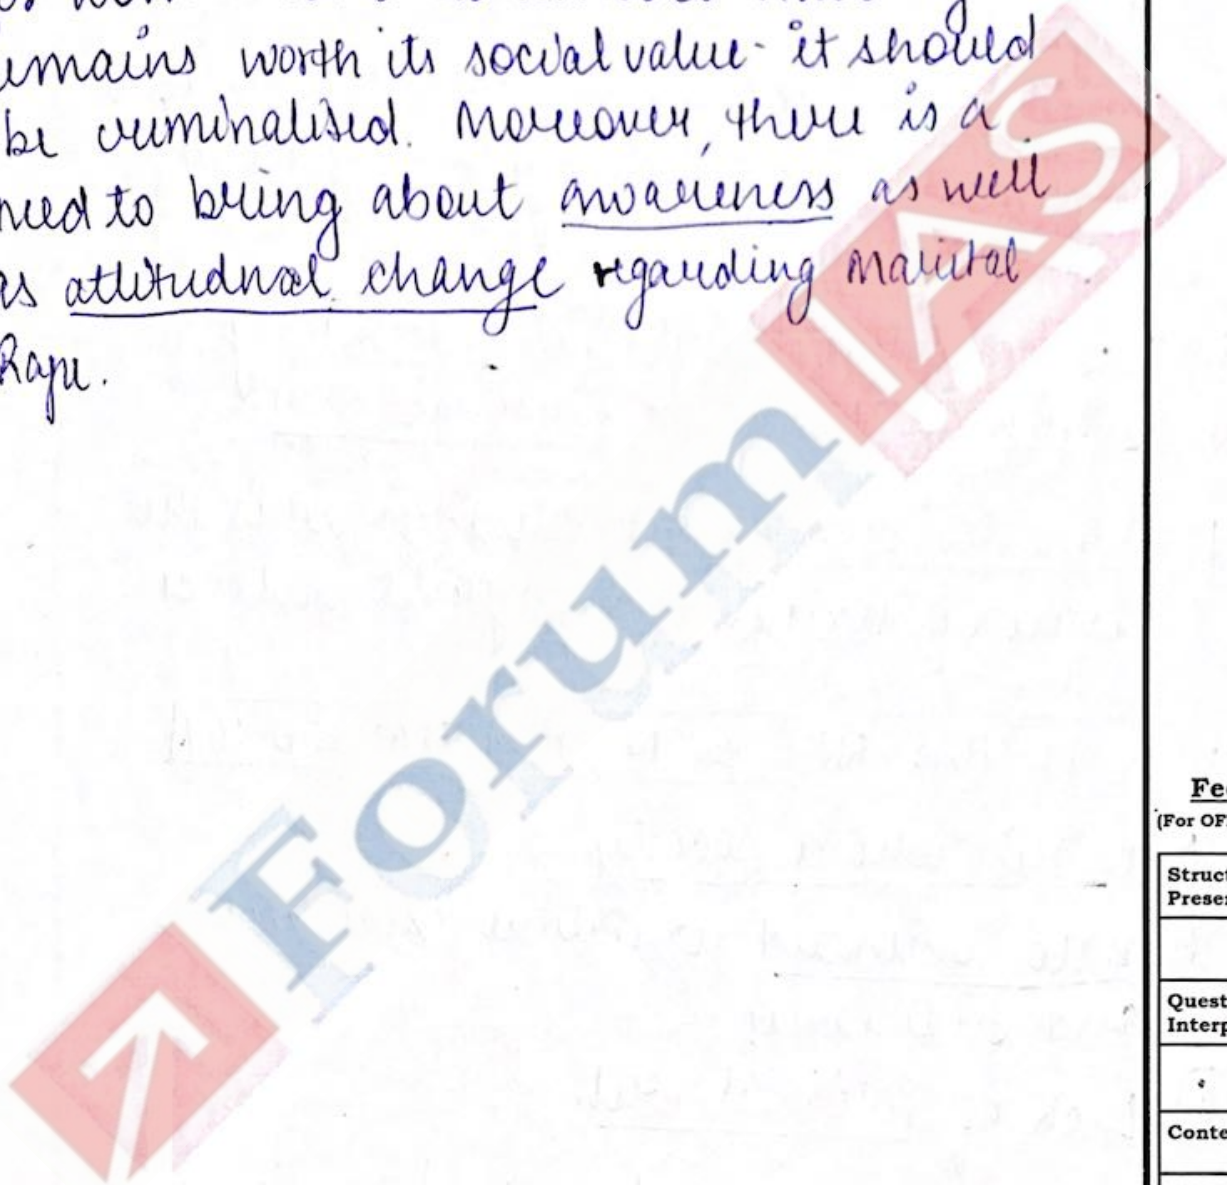 emains worth its social value- it should
be criminalised. Moreover, there is a
need to bring about awareness as well
as attitudnal change regarding Marital
Rape.
Forum IAS
Fee
(For OF
Struct
Preser
Quest
Interp
Conte